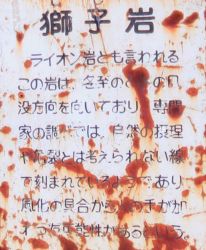 獅子岩
ライオン岩とも言われる
この岩は、冬至の
没方向を向いており、専門
家の では、自然の摂理
や とは考えられない線
で刻まれているようであり
風化の具合から 手がか
わった可能性があるという